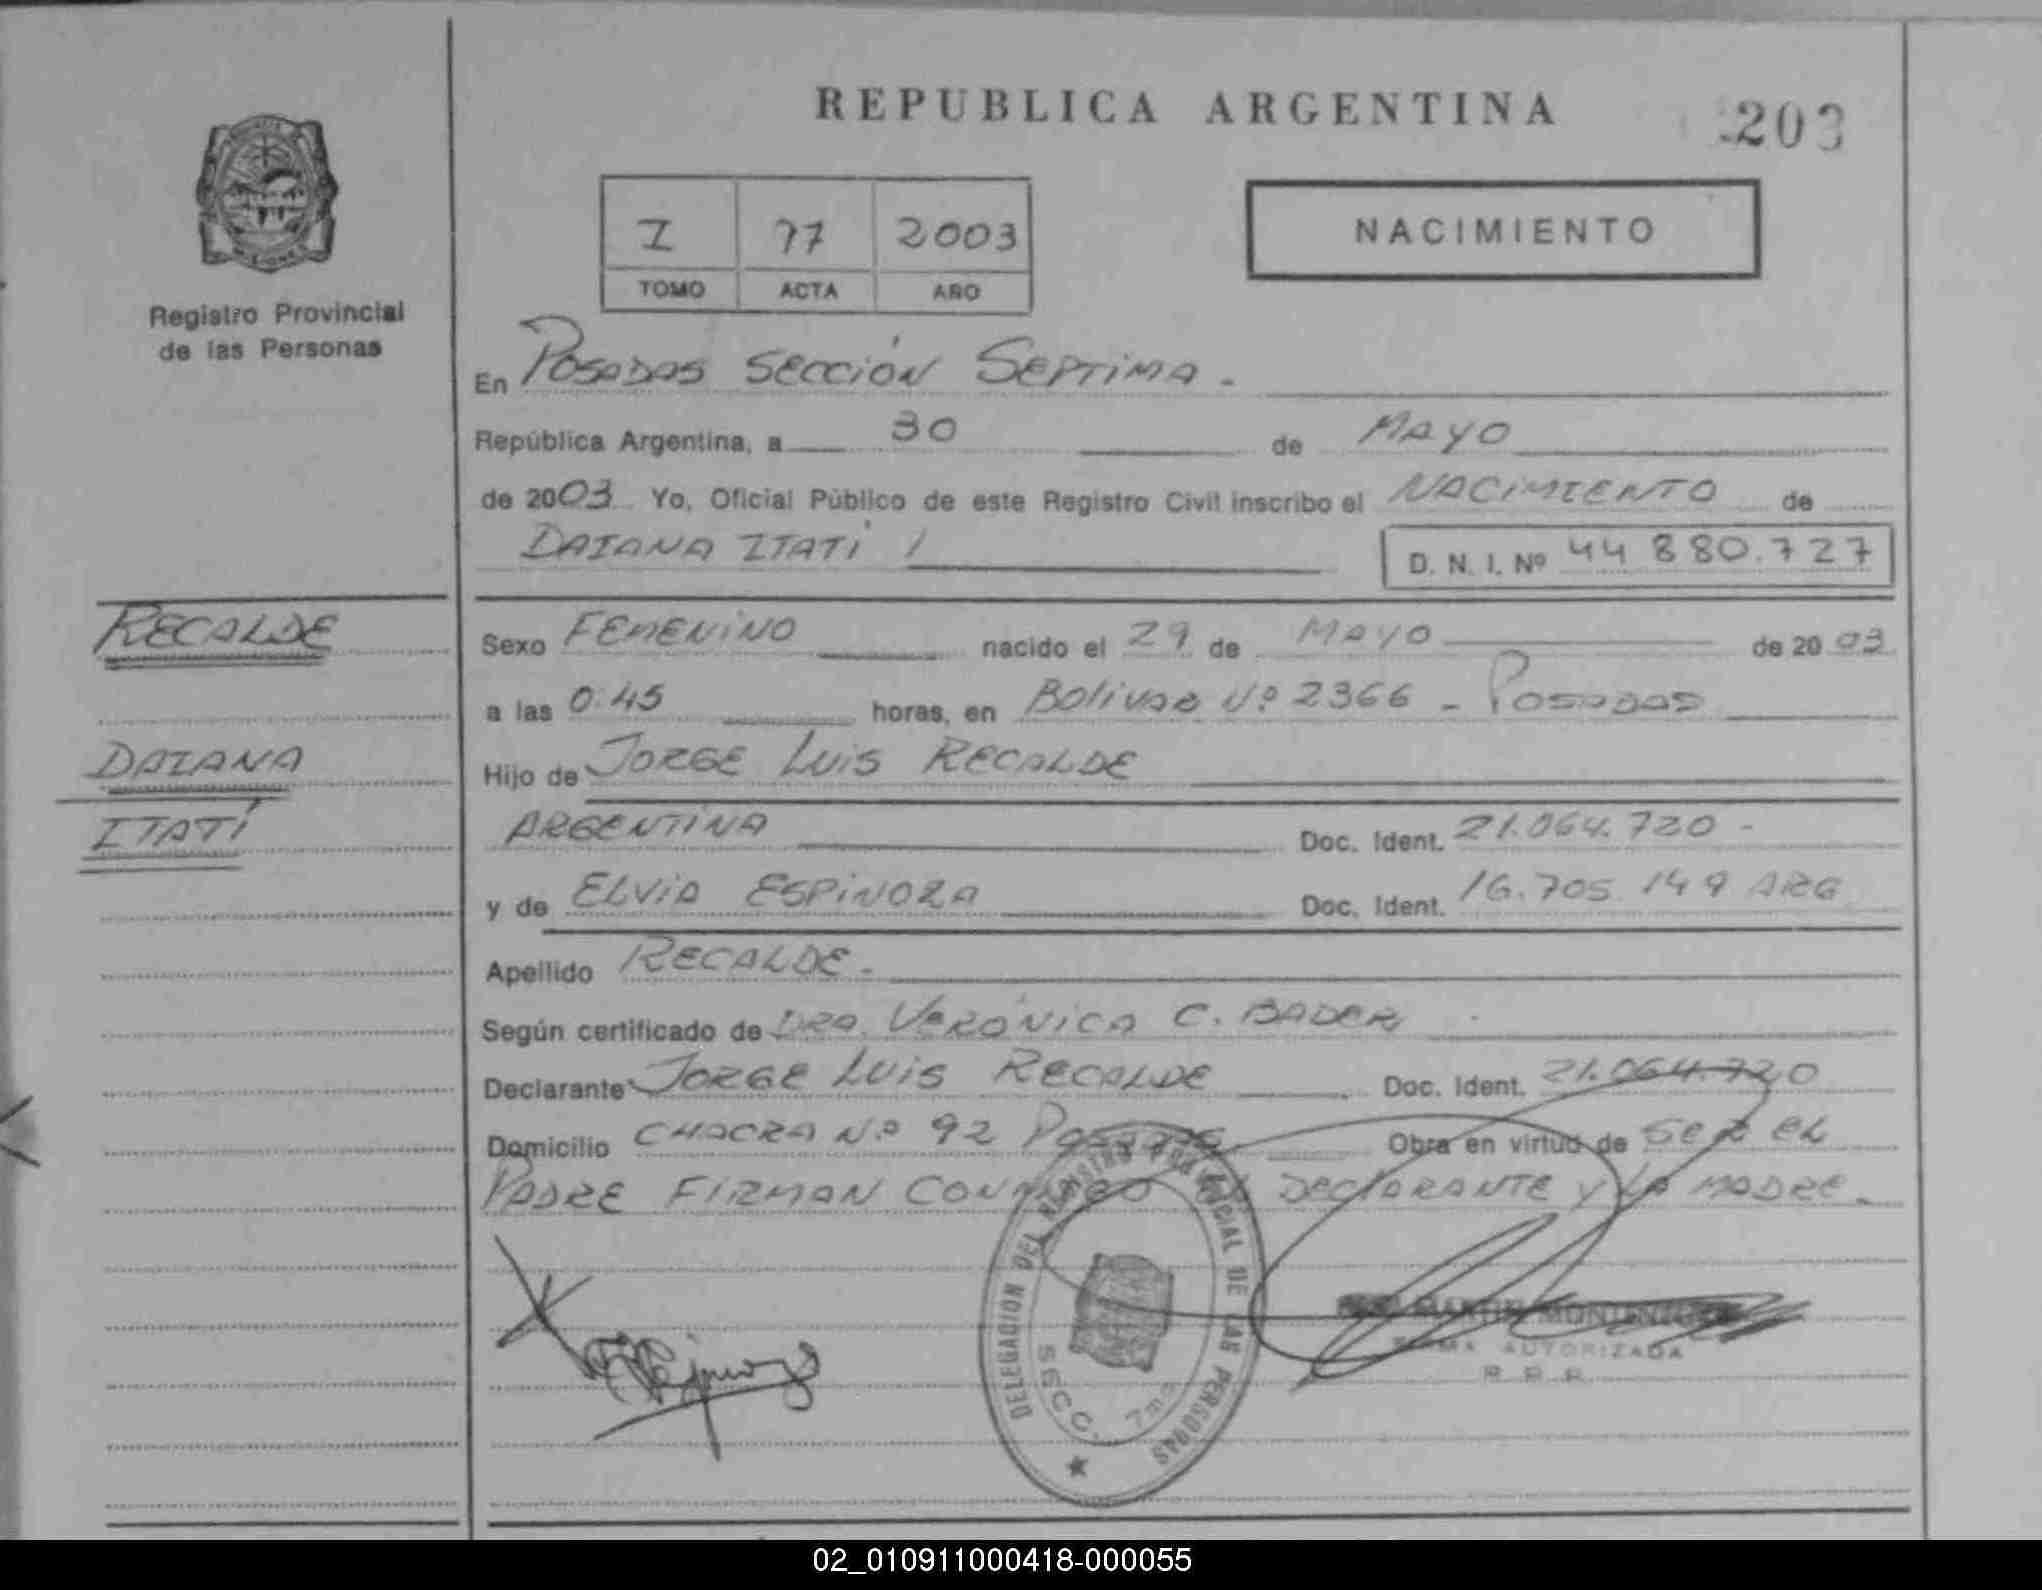 REPUBLICA ARGENTINA
203
I 77 2003
TOMO ACTA AÑO
NACIMIENTO
Registro Provincial
de las Personas
En Posadas Sección Septima.
República Argentina, a 30 de Mayo
de 2003 Yo, Oficial Público de este Registro Civil inscribo el NACIMIENTO de
DAIANA ITATÍ /
D. N. I. Nº 44 880.727
RECALDE
DAIANA
ITATÍ
Sexo FEMENINO nacido el 29 de MAYO de 2003
a las 0:45 horas, en Bolivar Nº 2366 - Posadas
Hijo de JORGE LUIS RECALDE
ARGENTINA Doc. Ident. 21.064.720 -
y de ELVIA ESPINOZA Doc. Ident. 16.705.149 ARG
Apellido RECALDE.
Según certificado de DRA. VERÓNICA C. BADER
Declarante JORGE LUIS RECALDE Doc. Ident. 21.064.720
Domicilio CHACRA Nº 92 Posadas Obra en virtud de SER EL
PADRE FIRMAN CONMIGO DECLARANTE Y LA MADRE.
DELEGACION DEL REGISTRO PROVINCIAL DE LAS PERSONAS
SECC. 7ma
MARTIN
FIRMA AUTORIZADA
R. P. P.
02_010911000418-000055